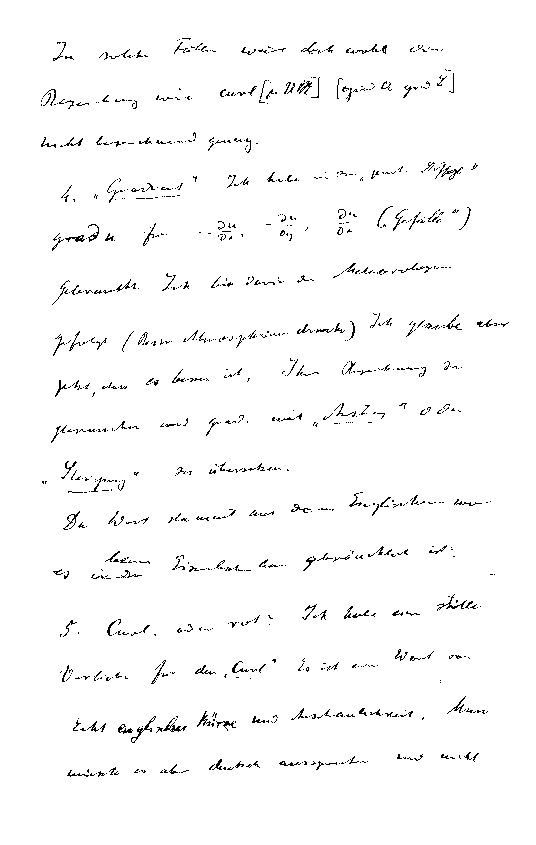 In solchen Fällen wäre doch wohl die
Bezeichnung wie curl [μ 𝔘 ] [grad grad ]
nicht bezeichnend genug.
4. „Gradient" Ich habe in der
grad u für -∂u/∂x, -∂u/∂y, ∂u/∂z („Gefälle")
gebraucht. Ich bin darin den Meteorologen
gefolgt ( Atmosphären ) Ich glaube aber
jetzt, dass es besser ist, Ihrer Anregung
und grad. mit „Anstieg" oder
„Steigung" zu übersetzen.
Das Wort stammt aus dem Englischen wo
es beim Eisenbahnbau gebräuchlich ist.
5. Curl. oder rot? Ich habe eine stille
Vorliebe für den „Curl" Es ist ein Wort von
echt englischer Kürze und Anschaulichkeit. Man
müsste es aber deutsch aussprechen und nicht